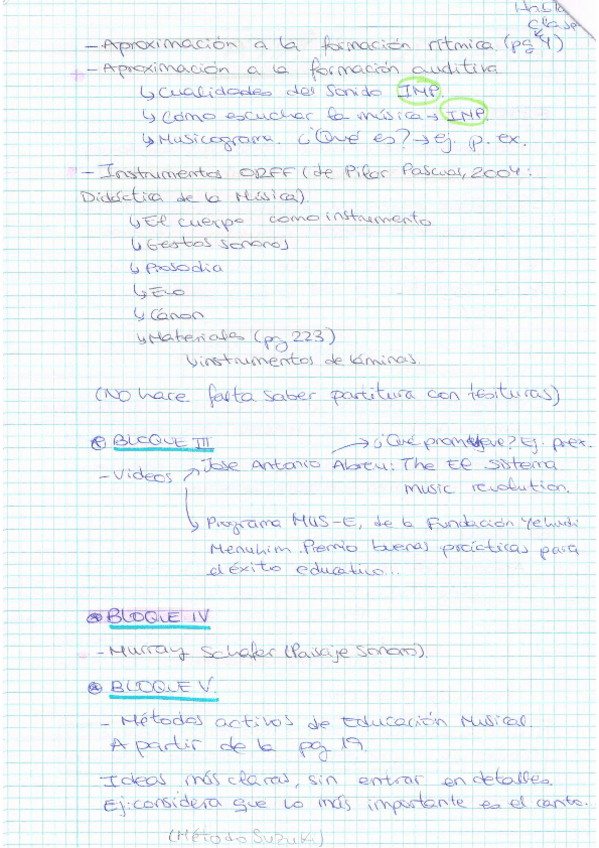 Hasta
clase
- Aproximación a la formación rítmica (pg 4)
- Aproximación a la formación auditiva
↳ Cualidades del sonido IMP
↳ Como escuchar la música → IMP
↳ Musicograma. ¿Qué es? → ej. p. ex.
- Instrumentos ORFF (de Pilar Pascual, 2004:
Didáctica de la Música).
↳ El cuerpo como instrumento
↳ Gestos sonoros
↳ Prosodia
↳ Eco
↳ Cánon
↳ Materiales (pg 223)
↳ instrumentos de láminas.
(No hace falta saber partitura con tesituras)
BLOQUE III
→ ¿Qué promueve? Ej. p. ex.
- Videos → Jose Antonio Abreu: The El Sistema
music revolution.
↳ Programa MUS-E, de la Fundación Yehudi
Menuhim. Premio buenas prácticas para
el éxito educativo...
BLOQUE IV
- Murray Schafer (Paisaje Sonoro)
BLOQUE V.
- Métodos activos de Educación Musical.
A partir de la pg 19.
Ideas más claras, sin entrar en detalles.
Ej: considera que lo más importante es el canto.
(Método Suzuki)